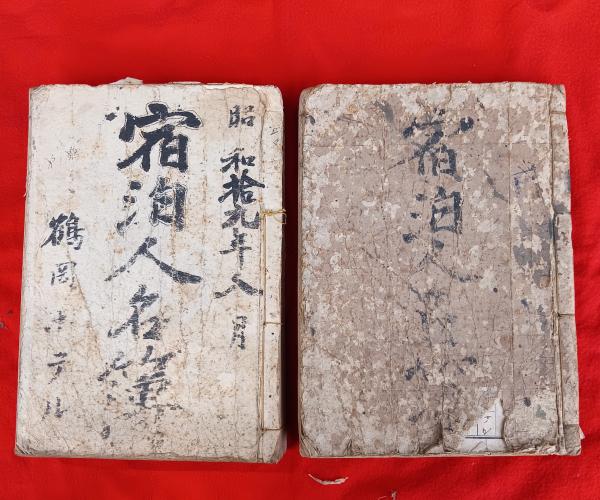 昭和拾九年八月
宿泊人名簿
鶴岡ホテル
宿泊人名簿